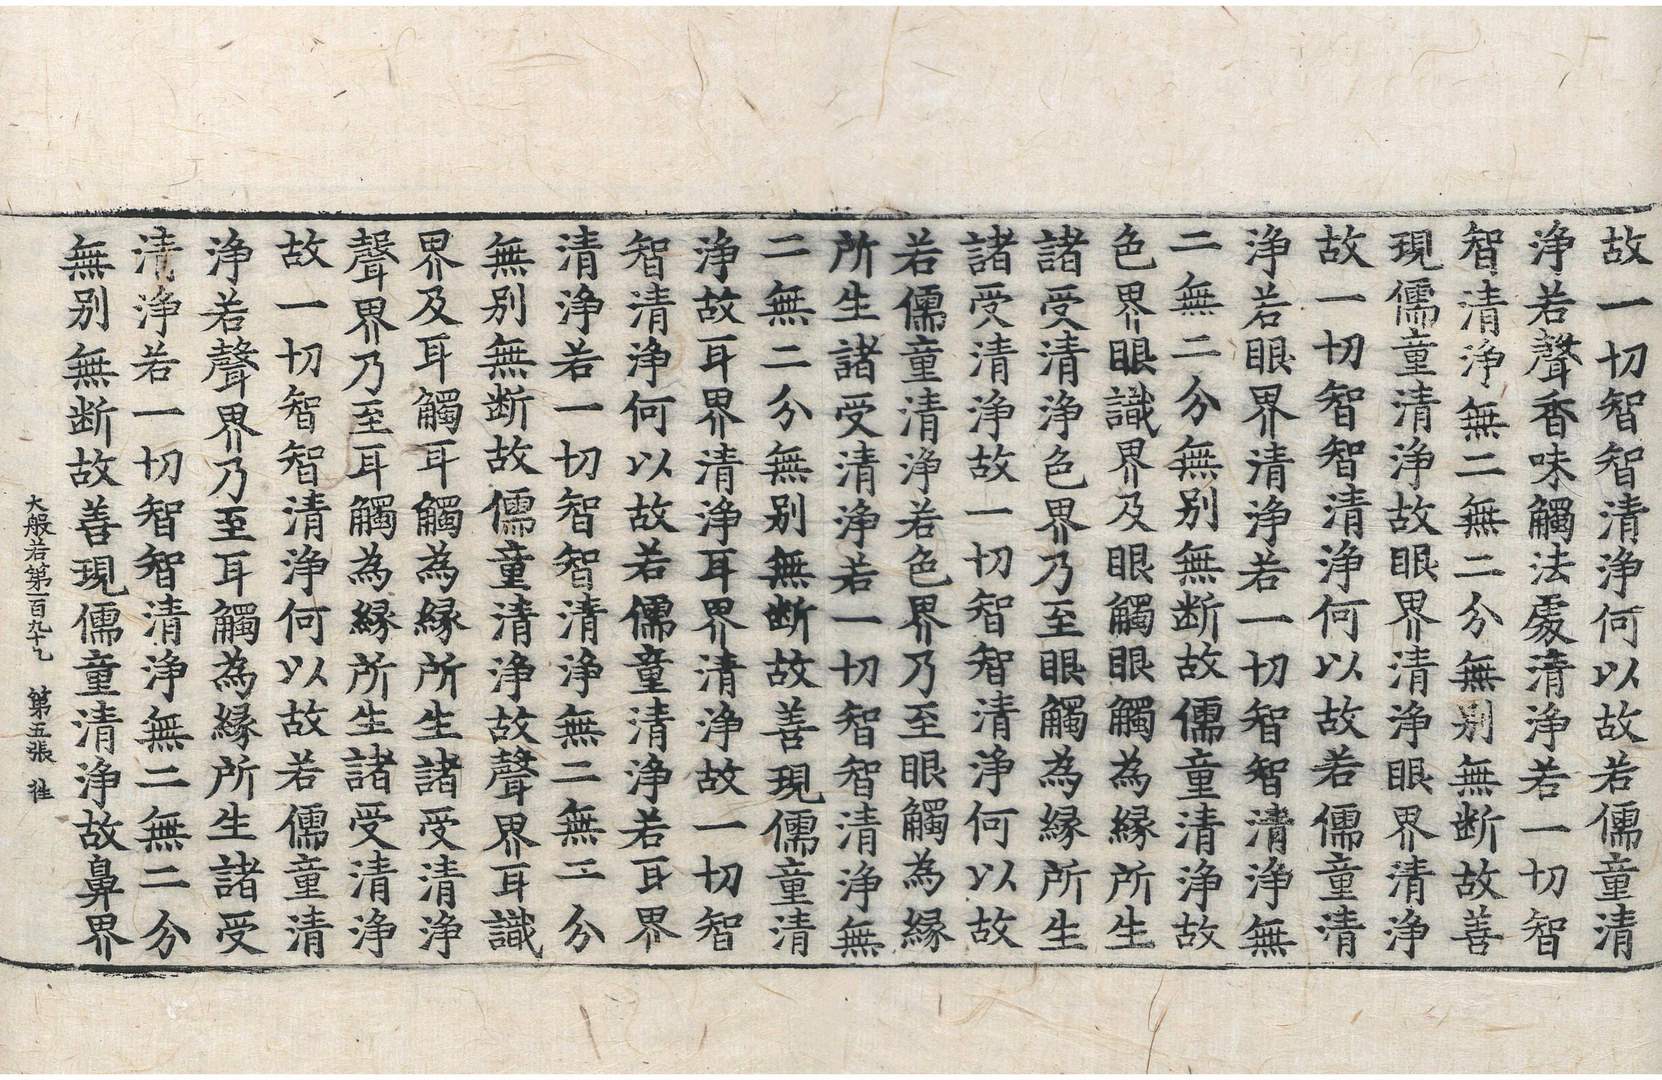 故一切智智清浄何以故若儒童清
浄若聲香味觸法處清浄若一切智
智清浄無二無二分無别無断故善
現儒童清浄故眼界清浄眼界清浄
故一切智智清浄何以故若儒童清
浄若眼界清浄若一切智智清浄無
二無二分無别無断故儒童清浄故
色界眼識界及眼觸眼觸為縁所生
諸受清浄色界乃至眼觸為縁所生
諸受清浄故一切智智清浄何以故
若儒童清浄若色界乃至眼觸為縁
所生諸受清浄若一切智智清浄無
二無二分無别無断故善現儒童清
浄故耳界清浄耳界清浄故一切智
智清浄何以故若儒童清浄若耳界
清浄若一切智智清浄無二無二分
無别無断故儒童清浄故聲界耳識
界及耳觸耳觸為縁所生諸受清浄
聲界乃至耳觸為縁所生諸受清浄
故一切智智清浄何以故若儒童清
浄若聲界乃至耳觸為縁所生諸受
清浄若一切智智清浄無二無二分
無别無断故善現儒童清浄故鼻界
大般若第一百九十 第五張 往